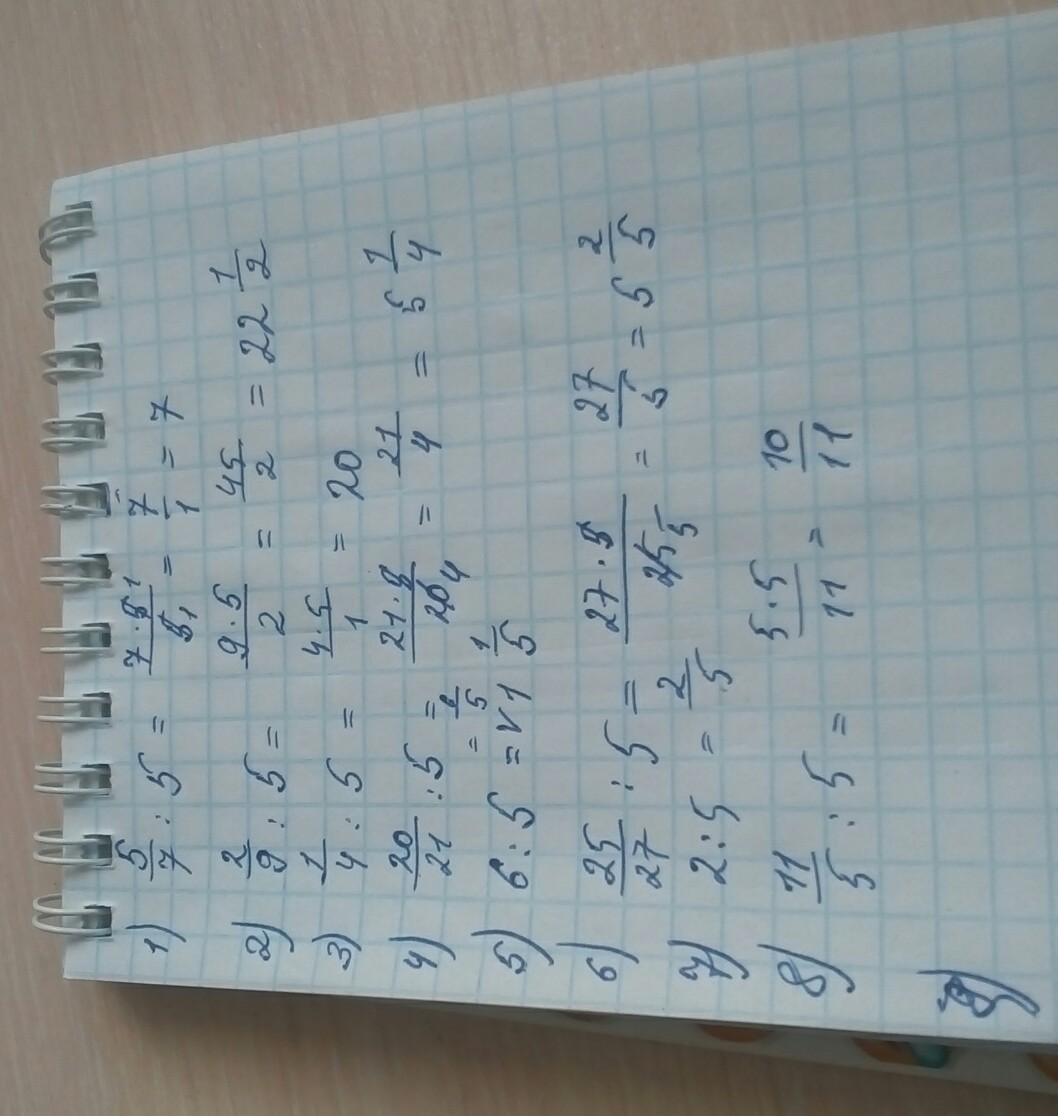 1) 5/7 : 5 = 7·5 1/5 1 = 7/1 = 7
2) 2/9 : 5 = 9·5/2 = 45/2 = 22 1/2
3) 1/4 : 5 = 4·5/1 = 20
4) 20/21 : 5 = 21·5/20 4 = 21/4 = 5 1/4
5) 6 : 5 = 6/5 = 1 1/5
6) 25/27 : 5 = 27·5/25 5 = 27/5 = 5 2/5
7) 2 : 5 = 2/5
8) 11/5 : 5 = 5·5/11 = 10/11